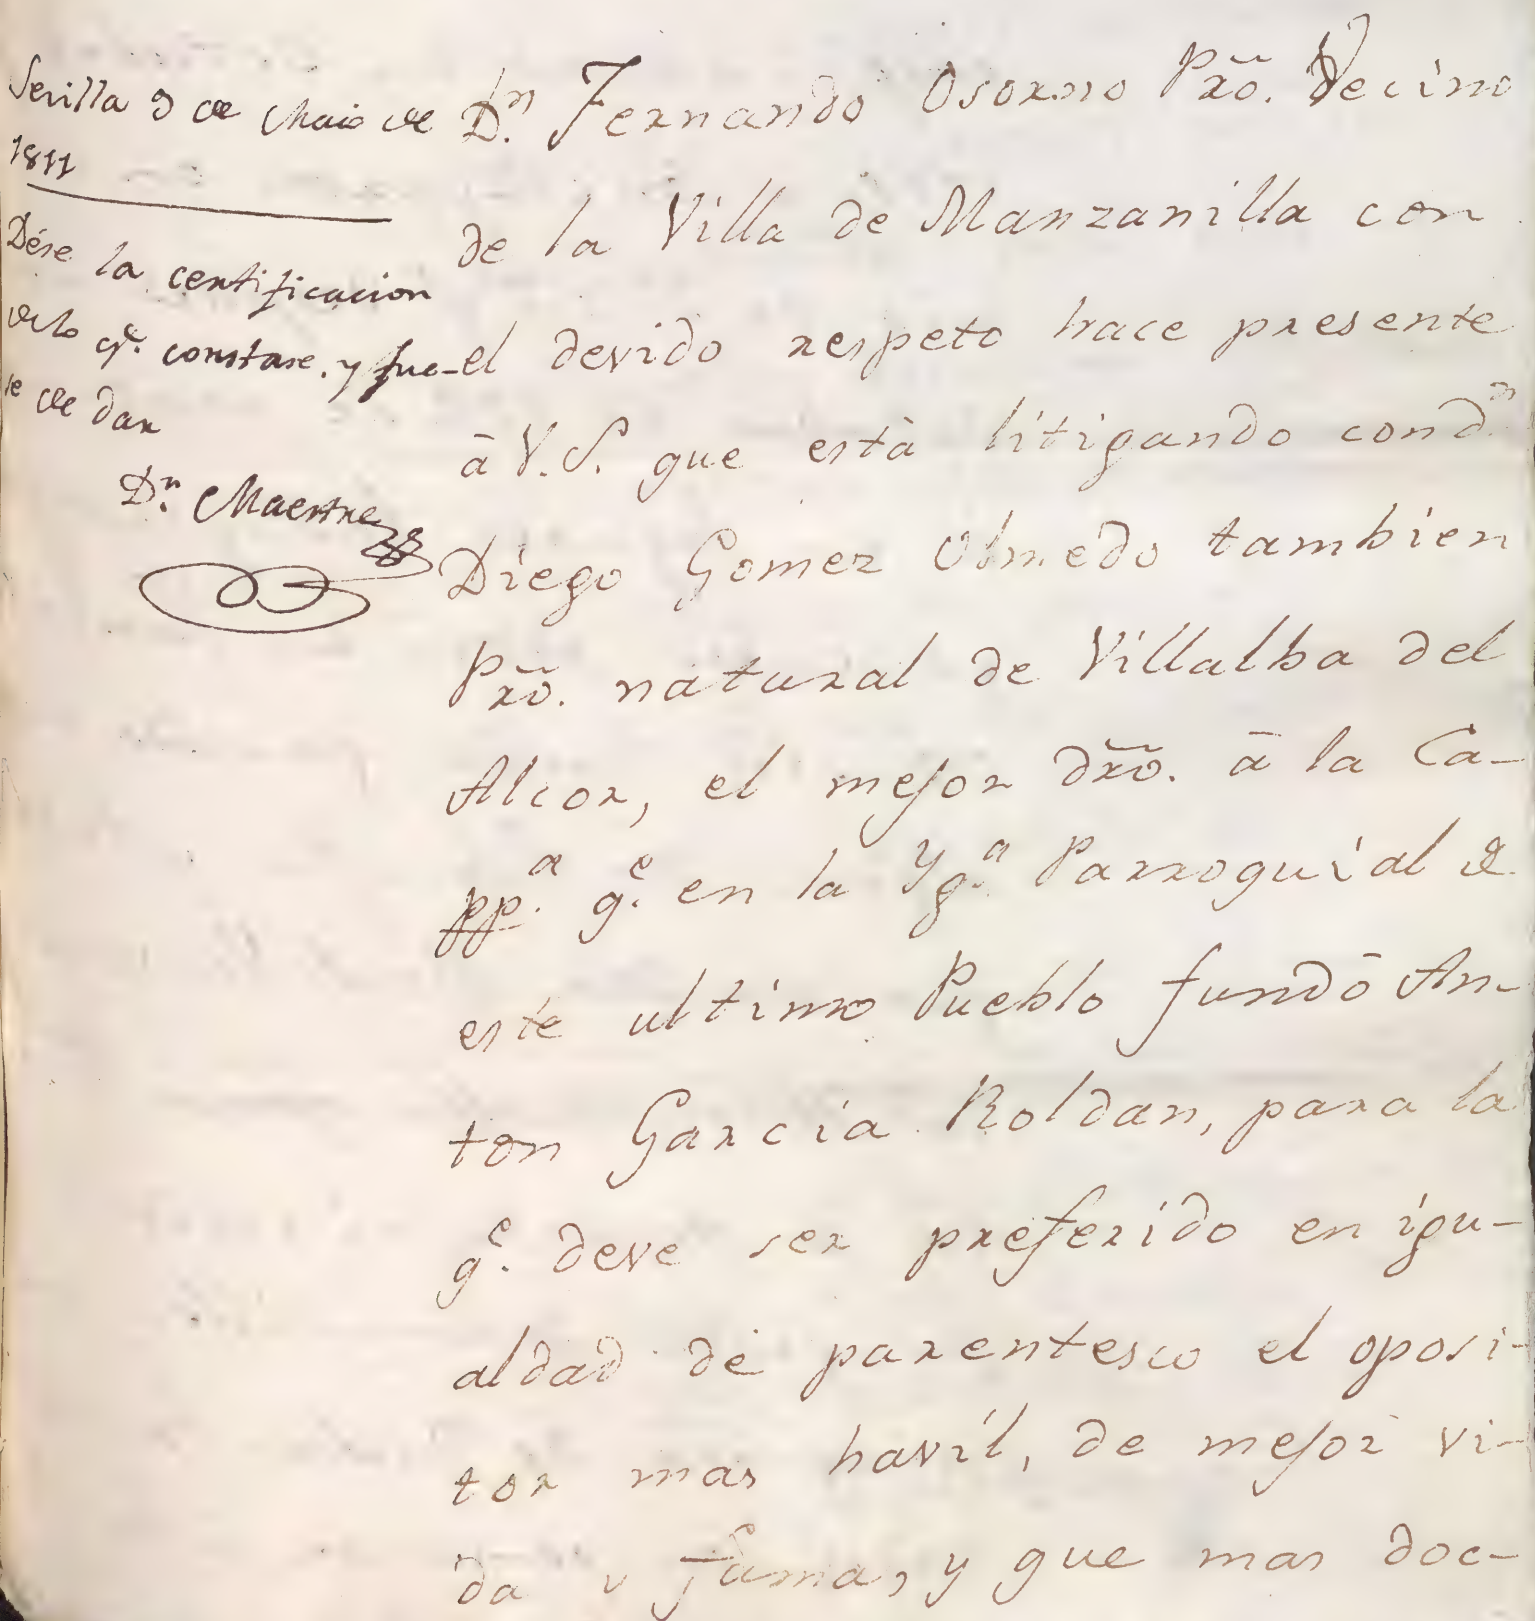 Sevilla 9 de Maio de
1811
Dése la certificacion
de lo qe. constare. y fue-
se de dar
Dn. Maestre
Dn. Fernando Osorno Pro. Vecino
de la Villa de Manzanilla con
el devido respeto hace presente
à V. S. que està litigando con dn.
Diego Gomez Olmedo tambien
Pro. natural de Villalba del
Alcor, el mejor dro. à la Ca-
ppa. qe. en la Yga. Parroquial de
este ultimo Pueblo fundó An-
ton Garcia Roldan, para la
qe. deve ser preferido en igu-
aldad de parentesco el oposi-
tor mas havil, de mejor vi-
da y fama, y que mas doc-